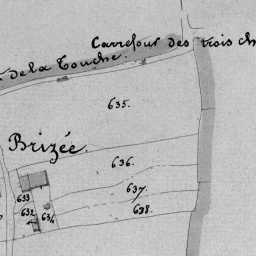 Carrefour des trois ch
de la Touche.
635.
Brizée
636.
637.
633
632
634
638.